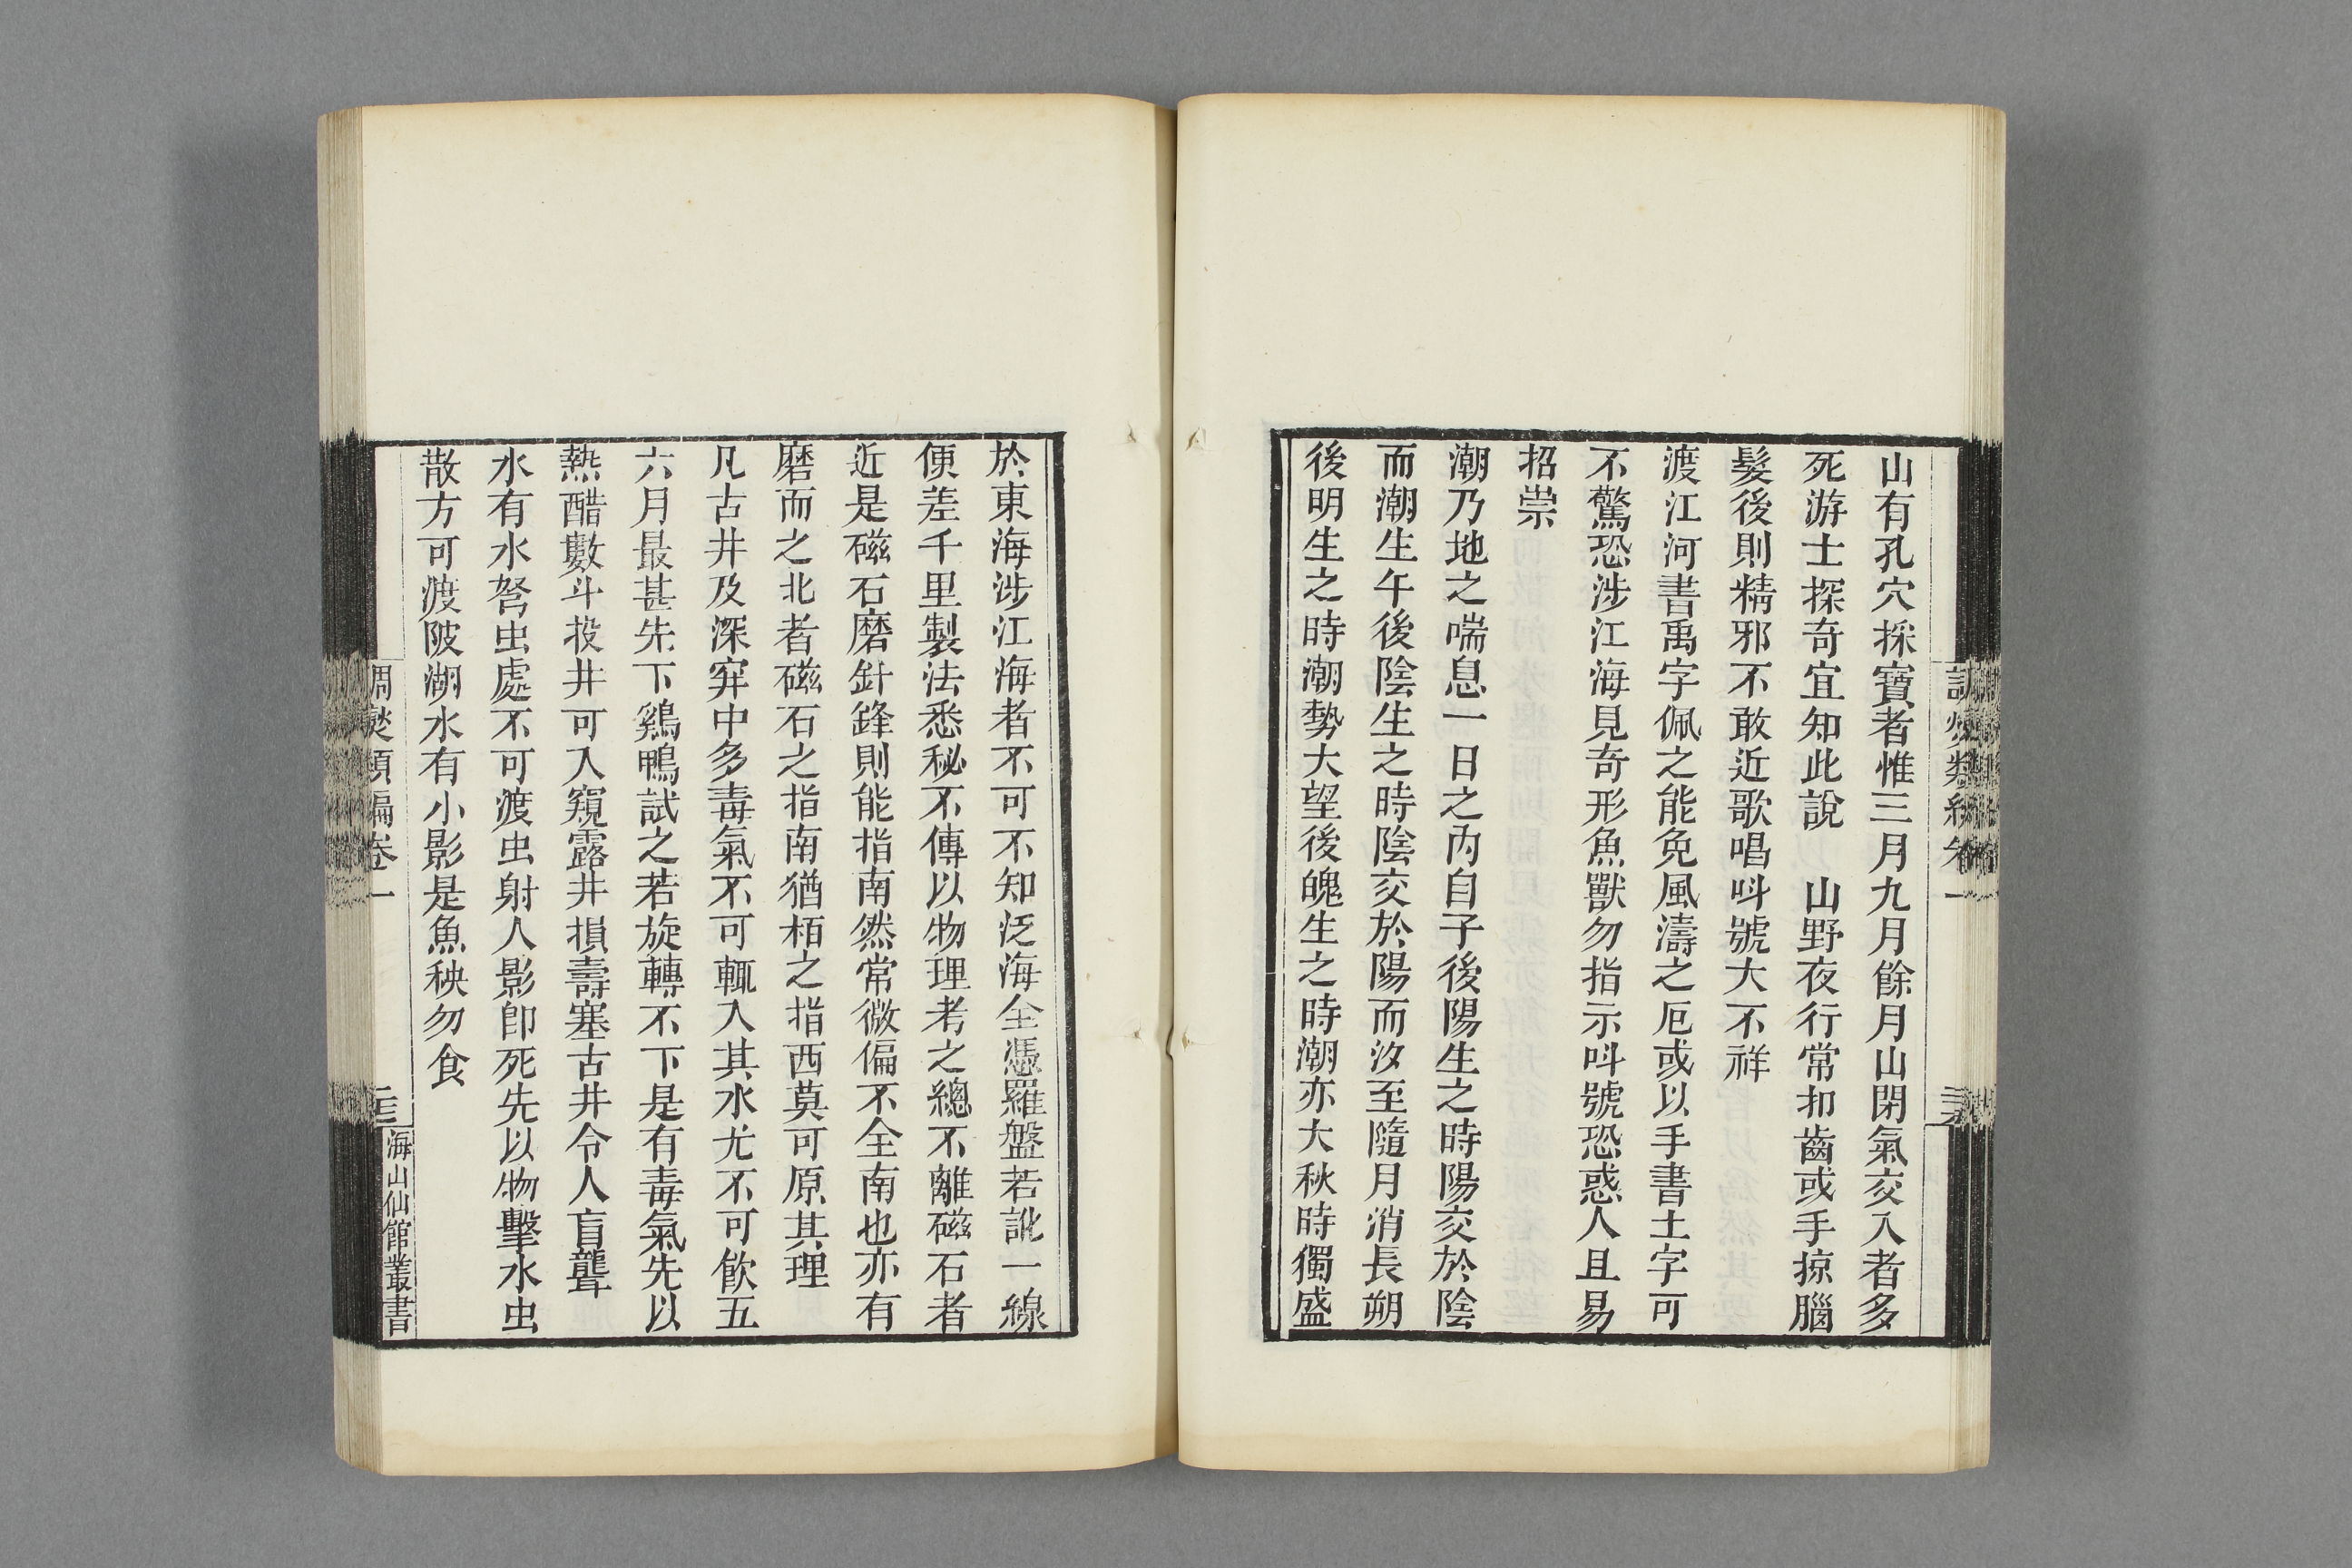 山有孔穴採寶者惟三月九月餘月山閉氣交入者多
死游士探奇宜知此說　山野夜行常扣齒或手掠腦
髮後則精邪不敢近歌唱呌號大不祥
渡江河書禹字佩之能免風濤之厄或以手書土字可
不驚恐涉江海見奇形魚獸勿指示呌號恐惑人且易
招祟
潮乃地之喘息一日之內自子後陽生之時陽交於陰
而潮生午後陰生之時陰交於陽而汐至隨月消長朔
後明生之時潮勢大望後魄生之時潮亦大秋時獨盛
於東海涉江海者不可不知泛海全憑羅盤若訛一線
便差千里製法悉秘不傳以物理考之總不離磁石者
近是磁石磨針鋒則能指南然常微偏不全南也亦有
磨而之北者磁石之指南猶栢之指西莫可原其理
凡古井及深穽中多毒氣不可輒入其水尤不可飲五
六月最甚先下鷄鴨試之若旋轉不下是有毒氣先以
熱醋數斗投井可入窺露井損壽塞古井令人盲聾
水有水弩虫處不可渡虫射人影卽死先以物擊水虫
散方可渡陂湖水有小影是魚秧勿食
調燮類編卷一
海山仙館叢書